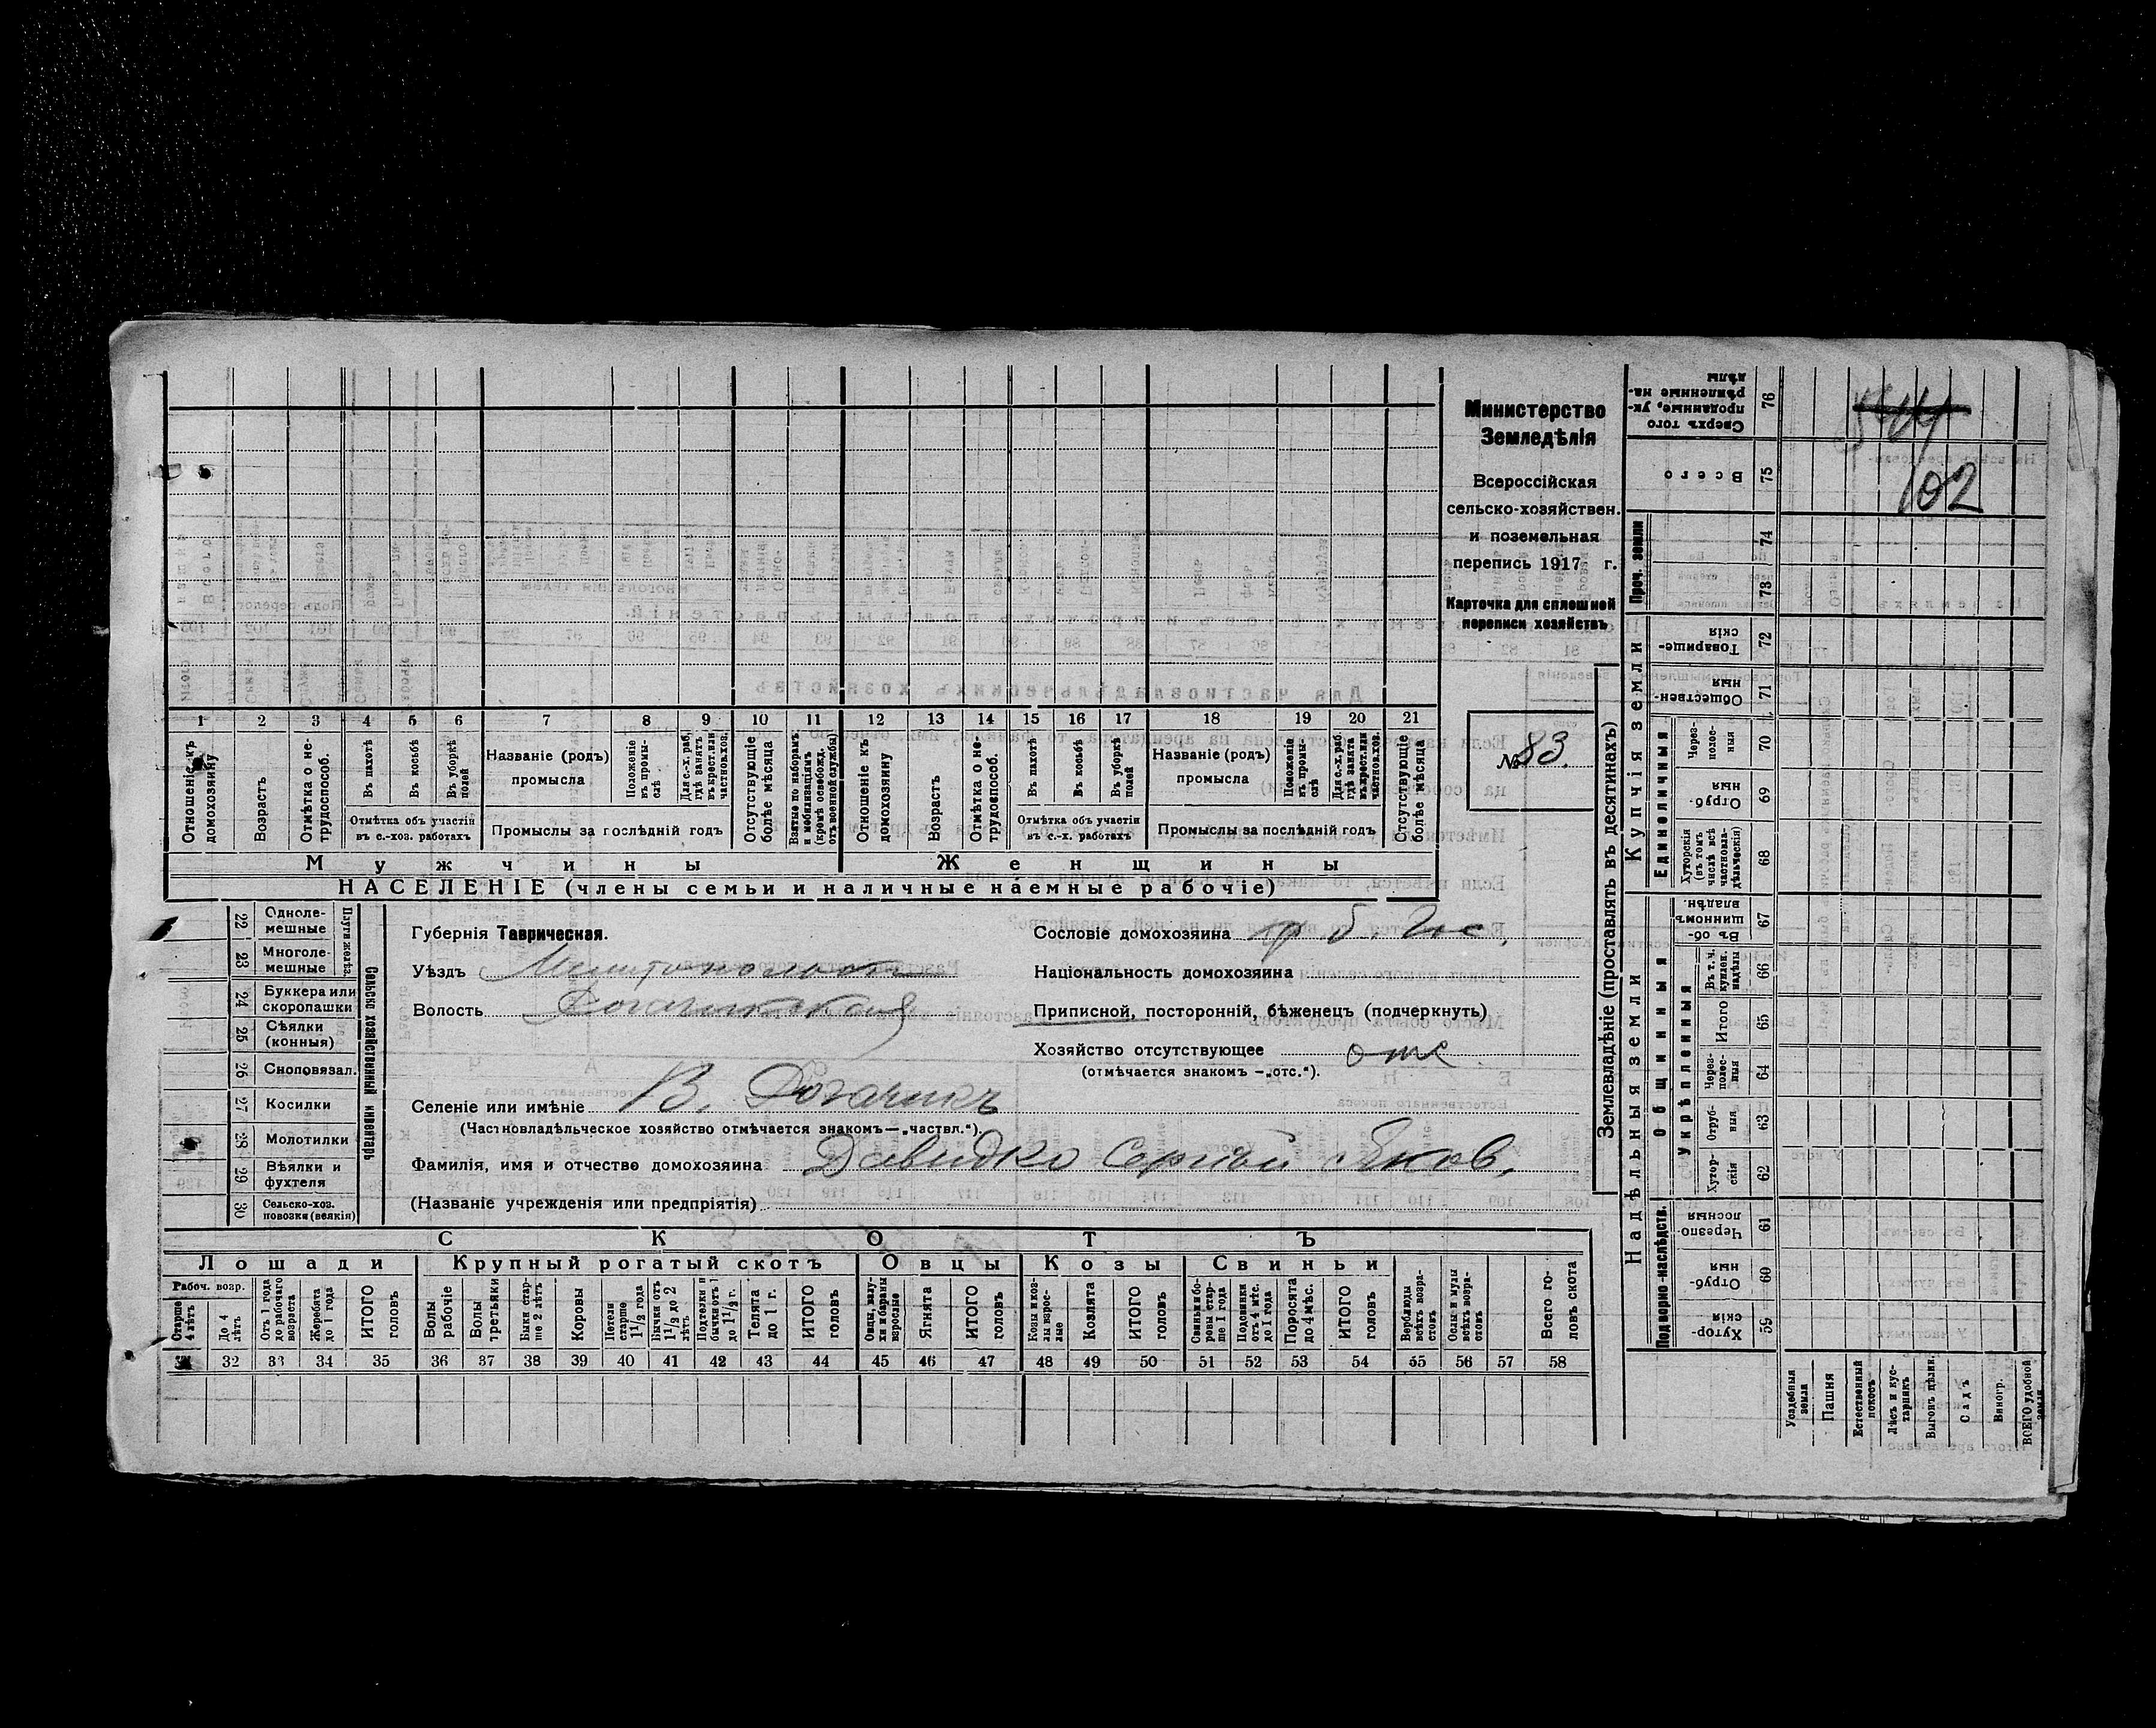 5444
102
Министерство
Земледѣлія
Всероссійская
сельско-хозяйствен.
и поземельная
перепись 1917 г.
Карточка для сплошной
переписи хозяйствъ
№ 83.
1 2 3 4 5 6 7 8 9 10 11 12 13 14 15 16 17 18 19 20 21
Отношеніе къ домохозяину
Возрастъ
Отмѣтка о нетрудоспособ.
Въ пахотѣ
Въ косьбѣ
Въ уборкѣ полей
Отмѣтка объ участіи
въ с.-хоз. работахъ
Названіе (родъ)
промысла
Положеніе въ промыслѣ
Для с.-х. раб. гдѣ занятъ въ крест. или частнов. хоз.
Промыслы за послѣдній годъ
Отсутствующіе болѣе мѣсяца
Взятые по наборамъ и мобилизаціямъ (кромѣ освобожд. отъ военной службы)
Отношеніе къ домохозяину
Возрастъ
Отмѣтка о нетрудоспособ.
Въ пахотѣ
Въ косьбѣ
Въ уборкѣ полей
Отмѣтка объ участіи
въ с.-х. работахъ
Названіе (родъ)
промысла
Положеніе въ промыслѣ
Для с.-х. раб. гдѣ занята въ крест. или частнов. хоз.
Промыслы за послѣдній годъ
Отсутствующіе болѣе мѣсяца
Мужчины Женщины
НАСЕЛЕНІЕ (члены семьи и наличные наемные рабочіе)
22 Однолемешные
23 Многолемешные
Плуги желѣз.
24 Буккера или скоропашки
25 Сѣялки (конныя)
26 Сноповязал.
27 Косилки
28 Молотилки
29 Вѣялки и фухтеля
30 Сельско-хоз. повозки (всякія)
Сельско хозяйственный инвентарь
Губернія Таврическая.
Уѣздъ
Волость Рогачикская
Сословіе домохозяина
Національность домохозяина
Приписной, посторонній, бѣженецъ (подчеркнуть)
Хозяйство отсутствующее отс
(отмѣчается знакомъ —„отс.“).
Селеніе или имѣніе В. Рогачикъ
(Частновладѣльческое хозяйство отмѣчается знакомъ—„частвл.“).
Фамилія, имя и отчество домохозяина Давидко Сергѣй Яков.
(Названіе учрежденія или предпріятія)
СКОТЪ
Лошади Крупный рогатый скотъ Овцы Козы Свиньи
Рабоч. возр.
Старше 4 лѣтъ
До 4 лѣтъ
Отъ 1 года до рабочаго возраста
Жеребята до 1 года
ИТОГО головъ
Волы рабочіе
Волы третьяки
Быки старше 2 лѣтъ
Коровы
Нетели старше 1 1/2 года
Бычки отъ 1 1/2 до 2 лѣтъ
Подтелки и бычки отъ 1 до 1 1/2 г.
Телята до 1 г.
ИТОГО головъ
Овцы, валухи и бараны взрослые
Ягнята
ИТОГО головъ
Козы и козлы взрослые
Козлята
ИТОГО головъ
Свиньи и боровы старше 1 года
Подсвинки отъ 4 мѣс. до 1 года
Поросята до 4 мѣс.
ИТОГО головъ
Верблюды всѣхъ возрастовъ
Ослы и мулы всѣхъ возрастовъ
Всего головъ скота
31 32 33 34 35 36 37 38 39 40 41 42 43 44 45 46 47 48 49 50 51 52 53 54 55 56 57 58
Землевладѣніе (проставлять въ десятинахъ)
Сверхъ того проданные, укрѣпленные надѣлы 76
Всего 75
Проч. земли 74
73
Купчія земли
Товарищескія 72
Общественныя 71
Единоличныя
Черезполосныя 70
Отрубныя 69
Хуторскія (въ томъ числѣ всѣ частновладѣльческія) 68
Надѣльныя земли
Общинныя
Въ общинномъ владѣн. 67
Укрѣпленныя
Въ т. ч. куплен. надѣлы 66
Итого 65
Черезполосныя 64
Отрубныя 63
Хуторскія 62
Подворно-наслѣдств.
Черезполосныя 61
Отрубныя 60
Хуторскія 59
Усадебныя земля
Пашня
Естественный покосъ
Лѣсъ и кустарникъ
Выгонъ цѣлин.
Садъ
Виногр.
ВСЕГО удобной земли